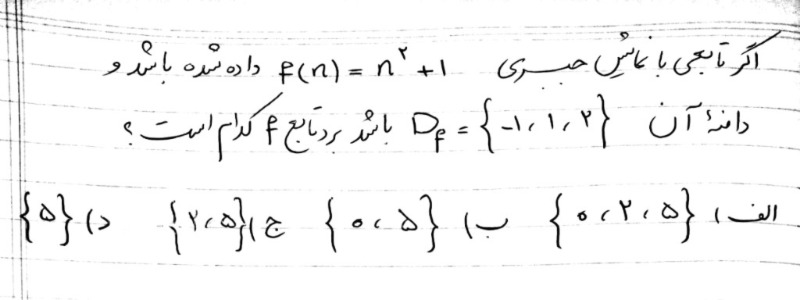 اگر تابعی با نمایش جبری f(n) = n² + 1 داده شده باشد و
دامنهٔ آن D_f = {-۱، ۱، ۲} باشد برد تابع f کدام است؟
الف) {۰، ۲، ۵} ب) {۰، ۵} ج) {۲، ۵} د) {۵}